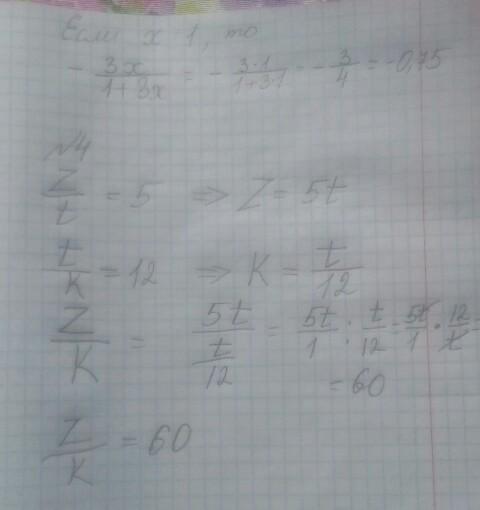 Если x 1, то
- 3x/(1+3x) = - 3·1/(1+3·1) - - 3/4 = -0,75
№4
Z/t = 5 ⇒ Z = 5t
t/K = 12 ⇒ K = t/12
Z/K = 5t/(t/12) = 5t/1 : t/12 = 5t/1 · 12/t =
= 60
Z/K = 60